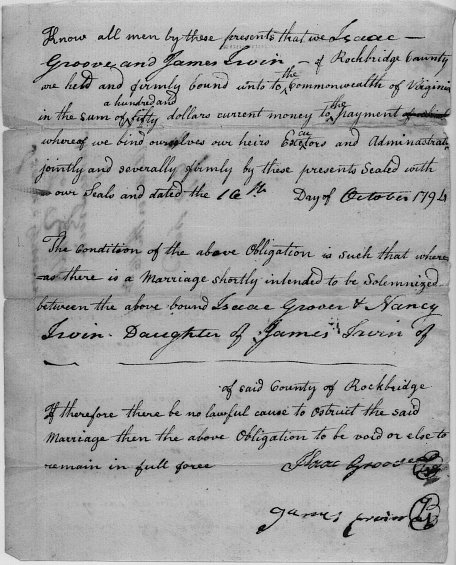 Know all men by these presents that we Isaac
Groove and James Irvin of Rockbridge County
are held and firmly bound unto to the Commonwealth of Virginia
in the sum of a hundred and fifty dollars current money to the payment
whereof we bind ourselves our heirs Executors and Adminastrat
jointly and severally firmly by these presents Sealed with
our Seals and dated the 16th Day of October 1794
The Condition of the above Obligation is such that where
as there is a Marriage shortly intended to be Solemnized
between the above bound Isaac Groover & Nancy
Irvin Daughter of James Irvin of
of said County of Rockbridge
If therefore there be no lawful cause to Ostruct the said
Marriage then the above Obligation to be void or else to
remain in full force Isaac Groose
James Irvin